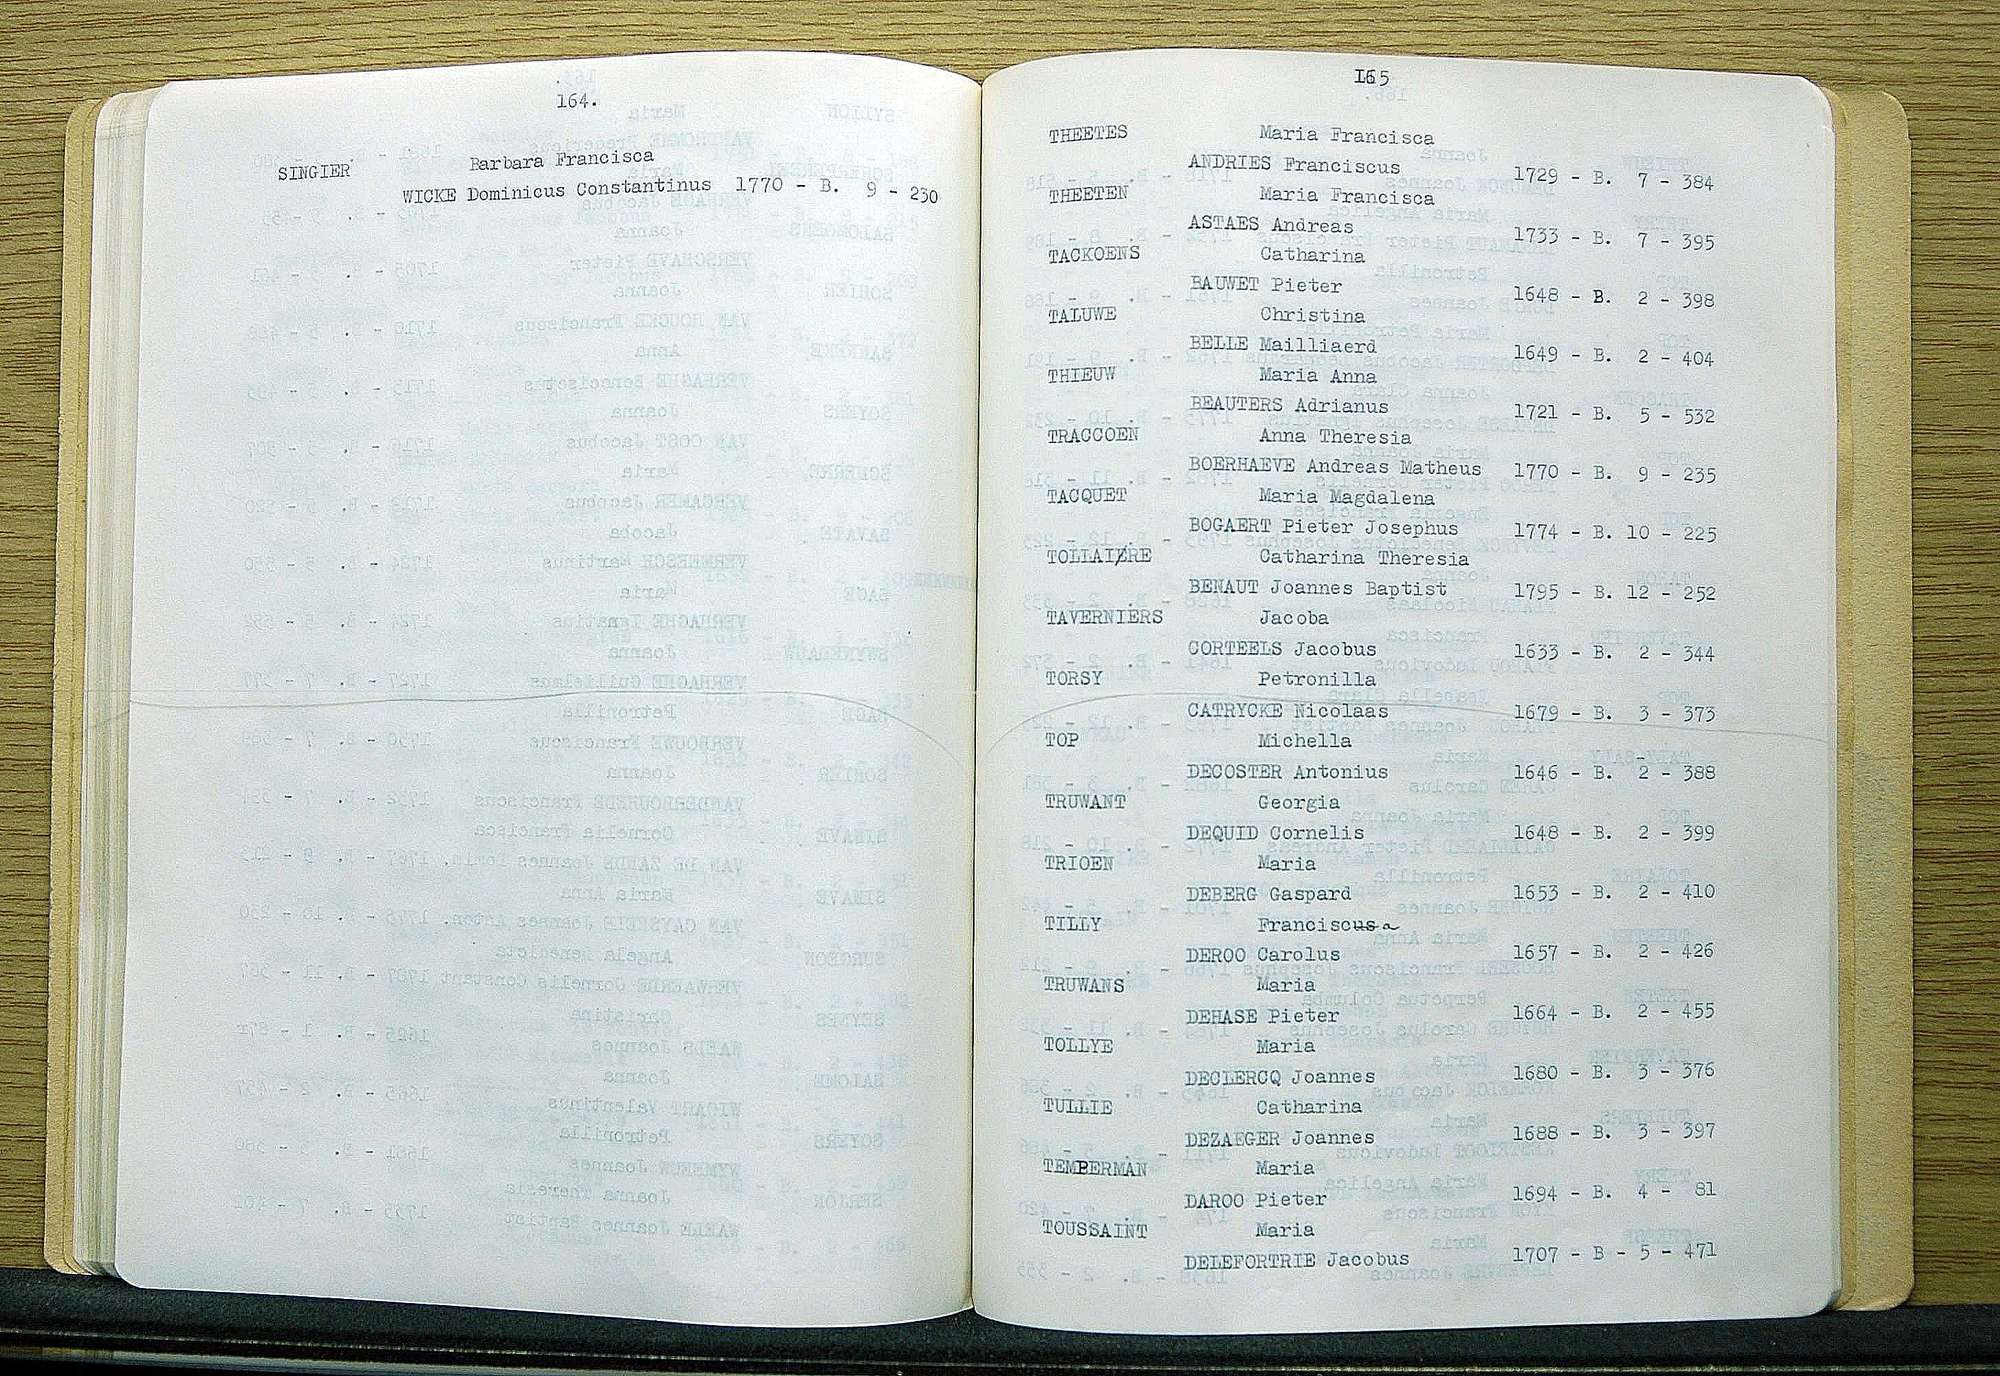 164.
SINGIER Barbara Francisca
WICKE Dominicus Constantinus 1770 - B. 9 - 230
165
THEETES Maria Francisca
ANDRIES Franciscus 1729 - B. 7 - 384
THEETEN Maria Francisca
ASTAES Andreas 1733 - B. 7 - 395
TACKOENS Catharina
BAUWET Pieter 1648 - B. 2 - 398
TALUWE Christina
BELLE Mailliaerd 1649 - B. 2 - 404
THIEUW Maria Anna
BEAUTERS Adrianus 1721 - B. 5 - 532
TRACCOEN Anna Theresia
BOERHAEVE Andreas Matheus 1770 - B. 9 - 235
TACQUET Maria Magdalena
BOGAERT Pieter Josephus 1774 - B. 10 - 225
TOLLAIERE Catharina Theresia
BENAUT Joannes Baptist 1795 - B. 12 - 252
TAVERNIERS Jacoba
CORTEELS Jacobus 1633 - B. 2 - 344
TORSY Petronilla
CATRYCKE Nicolaas 1679 - B. 3 - 373
TOP Michella
DECOSTER Antonius 1646 - B. 2 - 388
TRUWANT Georgia
DEQUID Cornelis 1648 - B. 2 - 399
TRIOEN Maria
DEBERG Gaspard 1653 - B. 2 - 410
TILLY Franciscus a
DEROO Carolus 1657 - B. 2 - 426
TRUWANS Maria
DEHASE Pieter 1664 - B. 2 - 455
TOLLYE Maria
DECLERCQ Joannes 1680 - B. 3 - 376
TULLIE Catharina
DEZAEGER Joannes 1688 - B. 3 - 397
TEMBERMAN Maria
DAROO Pieter 1694 - B. 4 - 81
TOUSSAINT Maria
DELEFORTRIE Jacobus 1707 - B - 5 - 471